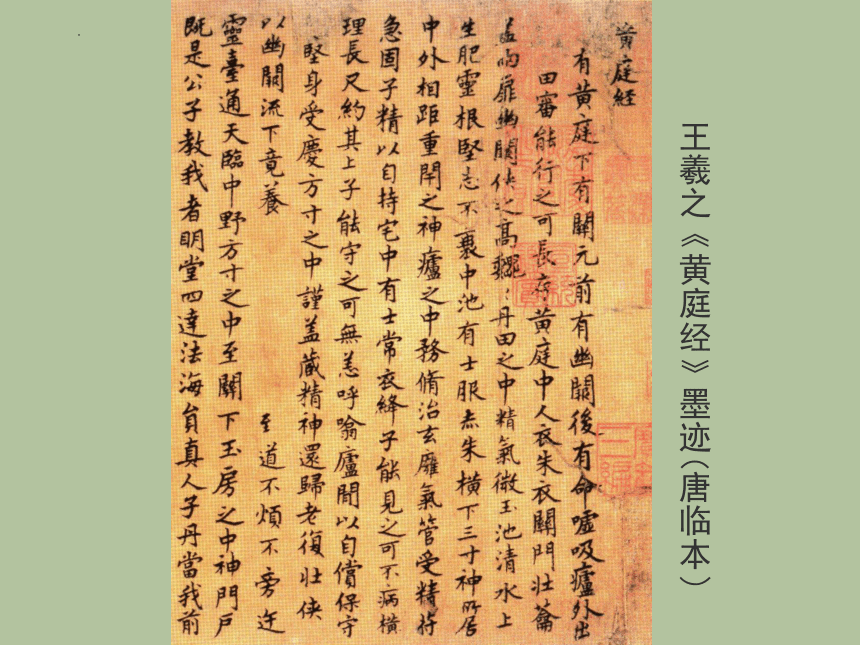 王羲之《黄庭经》墨迹(唐临本)
黄庭経
有黄庭下有關元前有幽闕後有命噓吸廬外出
田審能行之可長存黄庭中人衣朱衣關門壯籥
盖兩扉幽闕俠之高魏:丹田之中精氣微玉池清水上
生肥靈根堅志不衰中池有士服赤朱横下三寸神所居
中外相距重閇之神廬之中務脩治玄膺氣管受精苻
急固子精以自持宅中有士常衣絳子能見之可不病横
理長尺約其上子能守之可無恙呼噏廬間以自償保守
堅身受慶方寸之中謹盖藏精神還歸老復壯俠
以幽闕流下竟養 至道不煩不旁迕
靈臺通天臨中野方寸之中至關下玉房之中神門戸
既是公子教我者明堂四達法海員真人子丹當我前